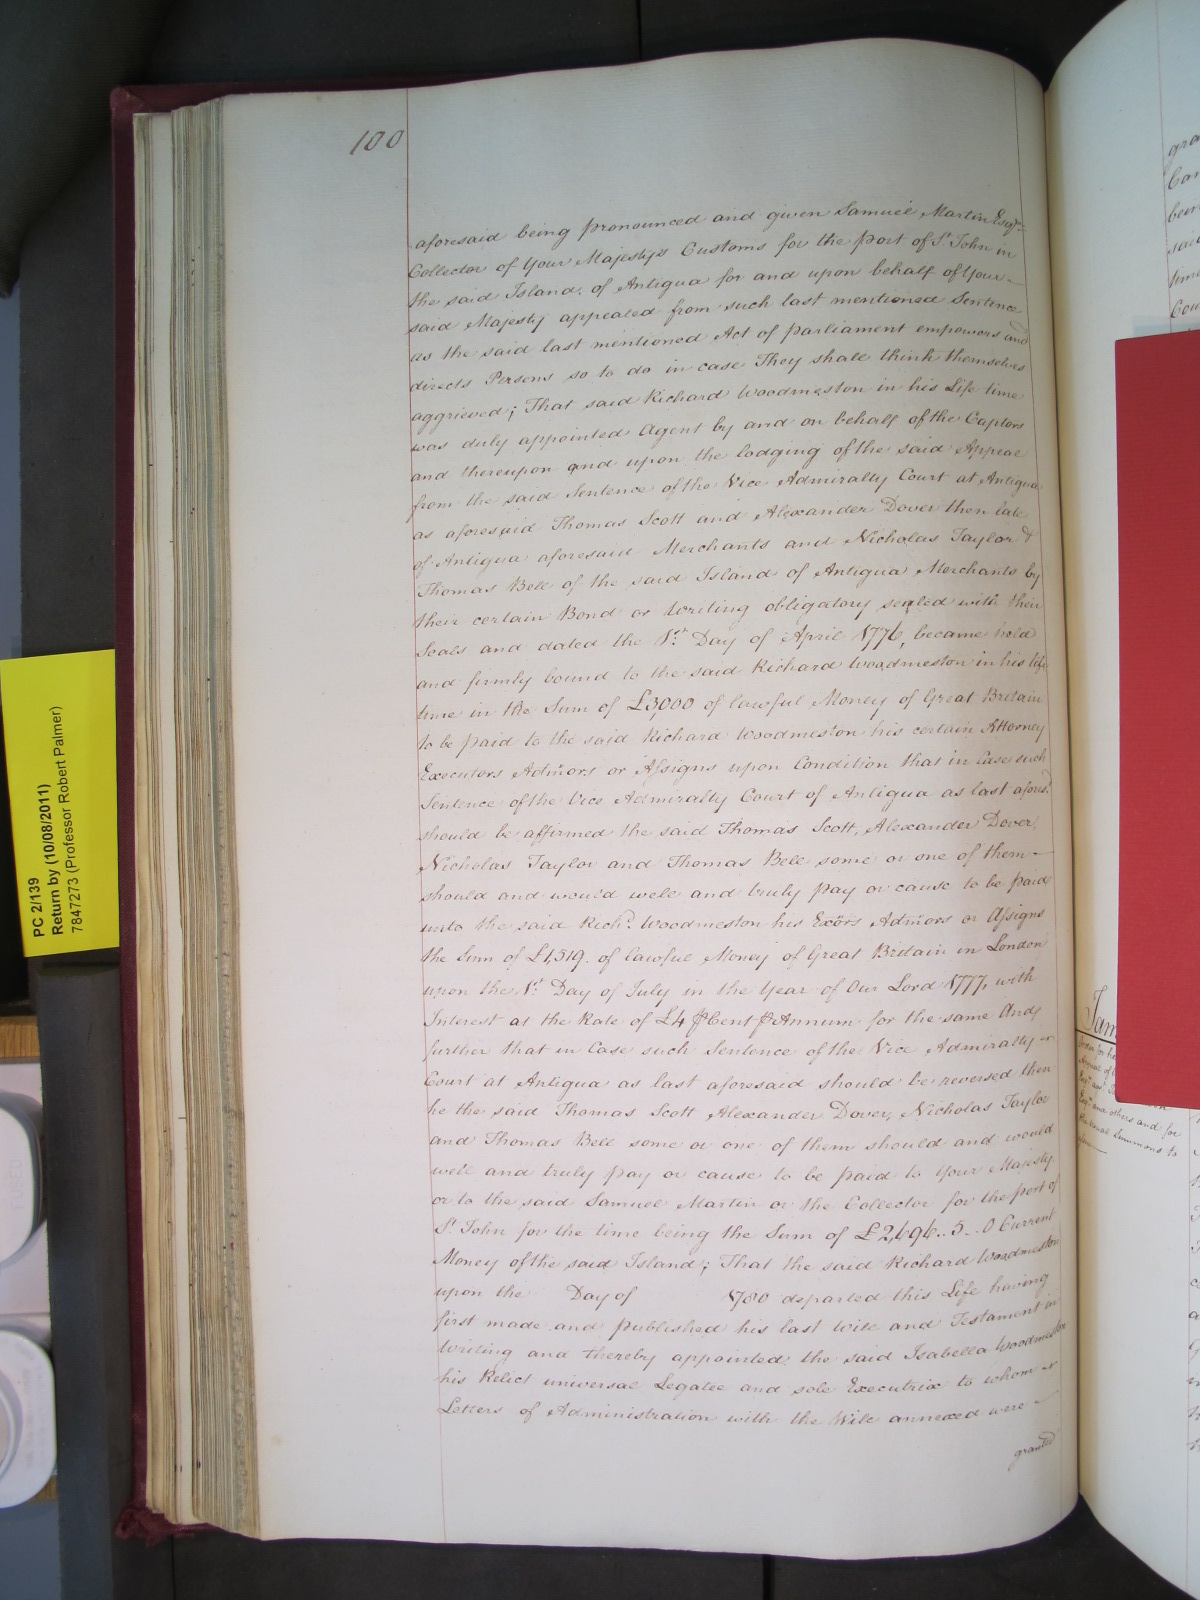 100
aforesaid being pronounced and given Samuel Martin Esqr.
Collector of Your Majestys Customs for the Port of St. John in
the said Island of Antigua for and upon behalf of Your
said Majesty appealed from such last mentioned Sentence
as the said last mentioned Act of Parliament empowers and
directs Persons so to do in case They shall think themselves
aggrieved; That said Richard Woodmeston in his Life time
was duly appointed Agent by and on behalf of the Captors
and thereupon and upon the lodging of the said Appeal
from the said Sentence of the Vice Admiralty Court at Antigua
as aforesaid Thomas Scott and Alexander Dover then late
of Antigua aforesaid Merchants and Nicholas Taylor &
Thomas Bell of the said Island of Antigua Merchants by
their certain Bond or Writing obligatory sealed with their
Seals and dated the 1st. Day of April 1776, became held
and firmly bound to the said Richard Woodmeston in his life
time in the Sum of £3,000 of lawful Money of Great Britain
to be paid to the said Richard Woodmeston his certain Attorney
Executors Admors or Assigns upon Condition that in Case such
Sentence of the Vice Admiralty Court of Antigua as last aforesd.
should be affirmed the said Thomas Scott, Alexander Dover,
Nicholas Taylor and Thomas Bell some or one of them
should and would well and truly pay or cause to be paid
unto the said Richd. Woodmeston his Exors Admors or Assigns
the Sum of £1,519. of lawful Money of Great Britain in London
upon the 1st. Day of July in the Year of Our Lord 1777, with
Interest at the Rate of £4 ⅌ Cent ⅌ Annum for the same And
further that in Case such Sentence of the Vice Admiralty
Court at Antigua as last aforesaid should be reversed then
he the said Thomas Scott Alexander Dover, Nicholas Taylor
and Thomas Bell some or one of them should and would
well and truly pay or cause to be paid to Your Majesty
or to the said Samuel Martin or the Collector for the Port of
St. John for the time being the Sum of £2,696..5..0 Current
Money of the said Island; That the said Richard Woodmeston
upon the Day of 1780 departed this Life having
first made and published his last Will and Testament in
Writing and thereby appointed the said Isabella Woodmeston
his Relict universal Legatee and sole Executrix to whom
Letters of Administration with the Will annexed were
granted
PC 2/139
Return by (10/08/2011)
7847273 (Professor Robert Palmer)
gra
Con
been
said
time
Cou
Jam
and others and for
Summons to